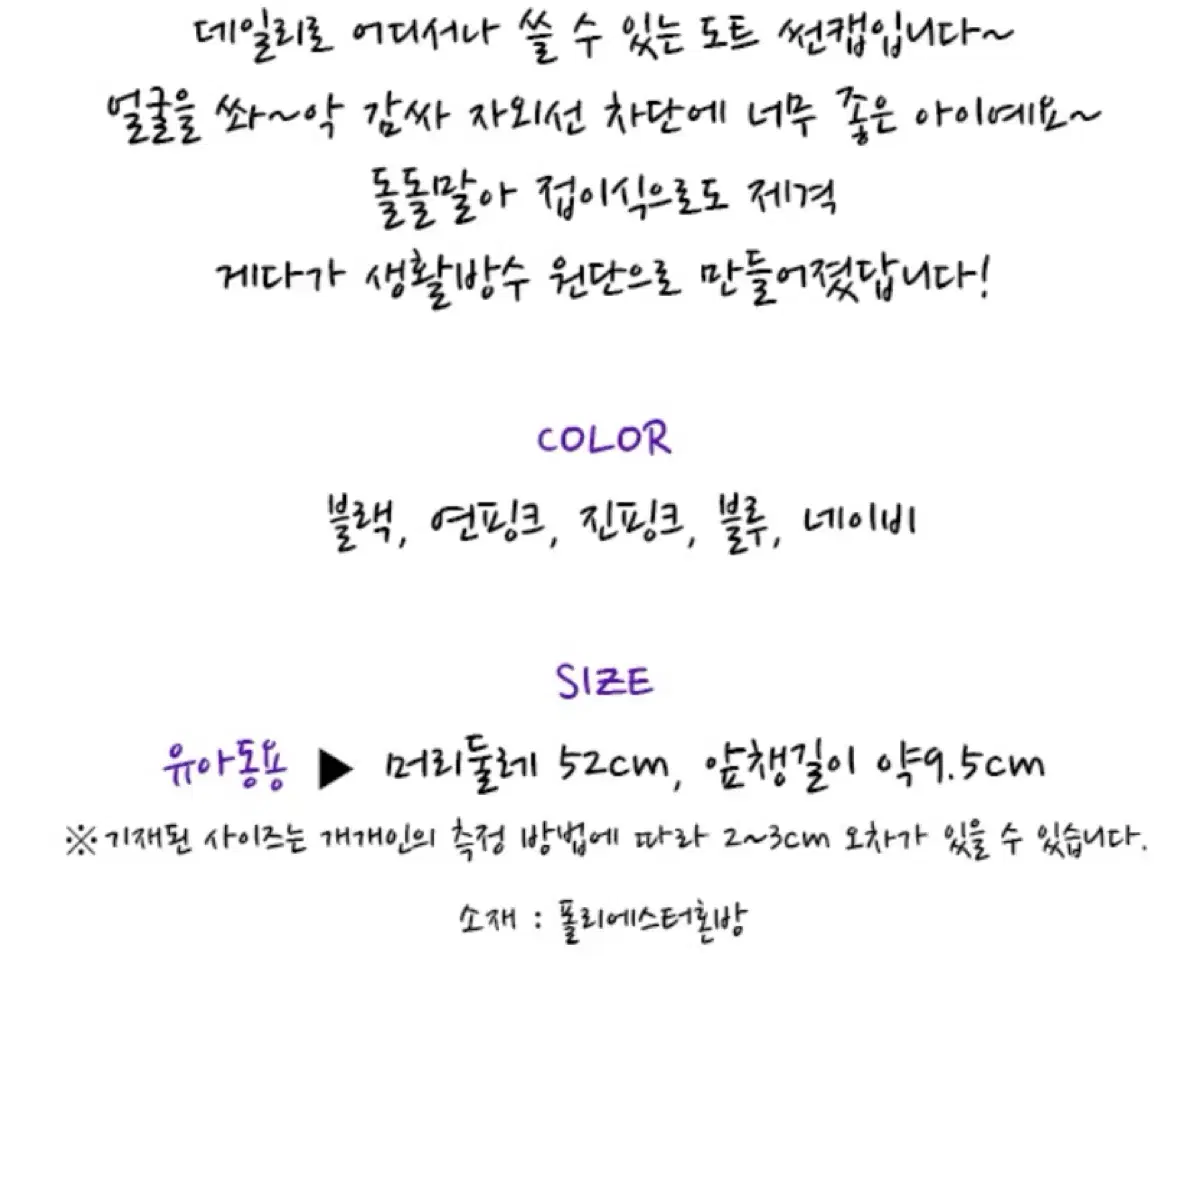 데일리로 어디서나 쓸 수 있는 도트 썬캡입니다~
얼굴을 쏴~악 감싸 자외선 차단에 너무 좋은 아이예요~
돌돌말아 접이식으로도 제격
게다가 생활방수 원단으로 만들어졌답니다!
COLOR
블랙, 연핑크, 진핑크, 블루, 네이비
SIZE
유아동용 ▶ 머리둘레 52cm, 앞챙길이 약9.5cm
※기재된 사이즈는 개개인의 측정 방법에 따라 2~3cm 오차가 있을 수 있습니다.
소재 : 폴리에스터혼방